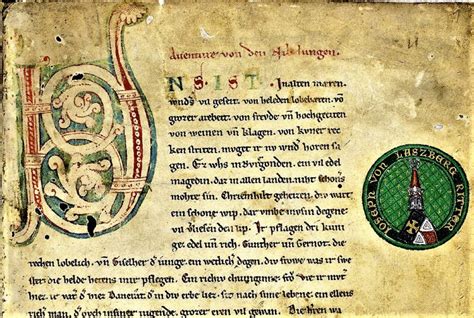 Auenture von den Nibelungen.
NSIST. Inalten mæren
wnds vil geseit. von heleden lobebæren. vñ
grozer arebeit. von frevde vñ hochgeciten
von weinen vñ klagen. von kvner re
cken striten. mvget ir nv wnd horen
sagen. Ez whs in Bvrgonden. ein vil edel
magedin. daz in allen landen. niht schoners
mohte sin. Chriemhilt geheizen. div wart
ein schone wip. dar vmbe mvsin degene
vil vliesen den lip. Ir pflagen dri kuni
ge edel vñ rich. Gunther vñ Gernot. die
rechen lobelich. vñ Giselher d ivnge. ein wetlich degen. div frowe was ir swe
ster die helde heten inir pflegen. Ein richiv chuniginne. frov Vte ir mvter
hiez. ir vater d hiez Dancrat. d in div erbe liez. sit nach sime lebene. ein ellens
rich man. d ovch insiner ivgende. grozer eren vil gewan. Die hren wa
JOSEPH VON LASZBERG RITTER